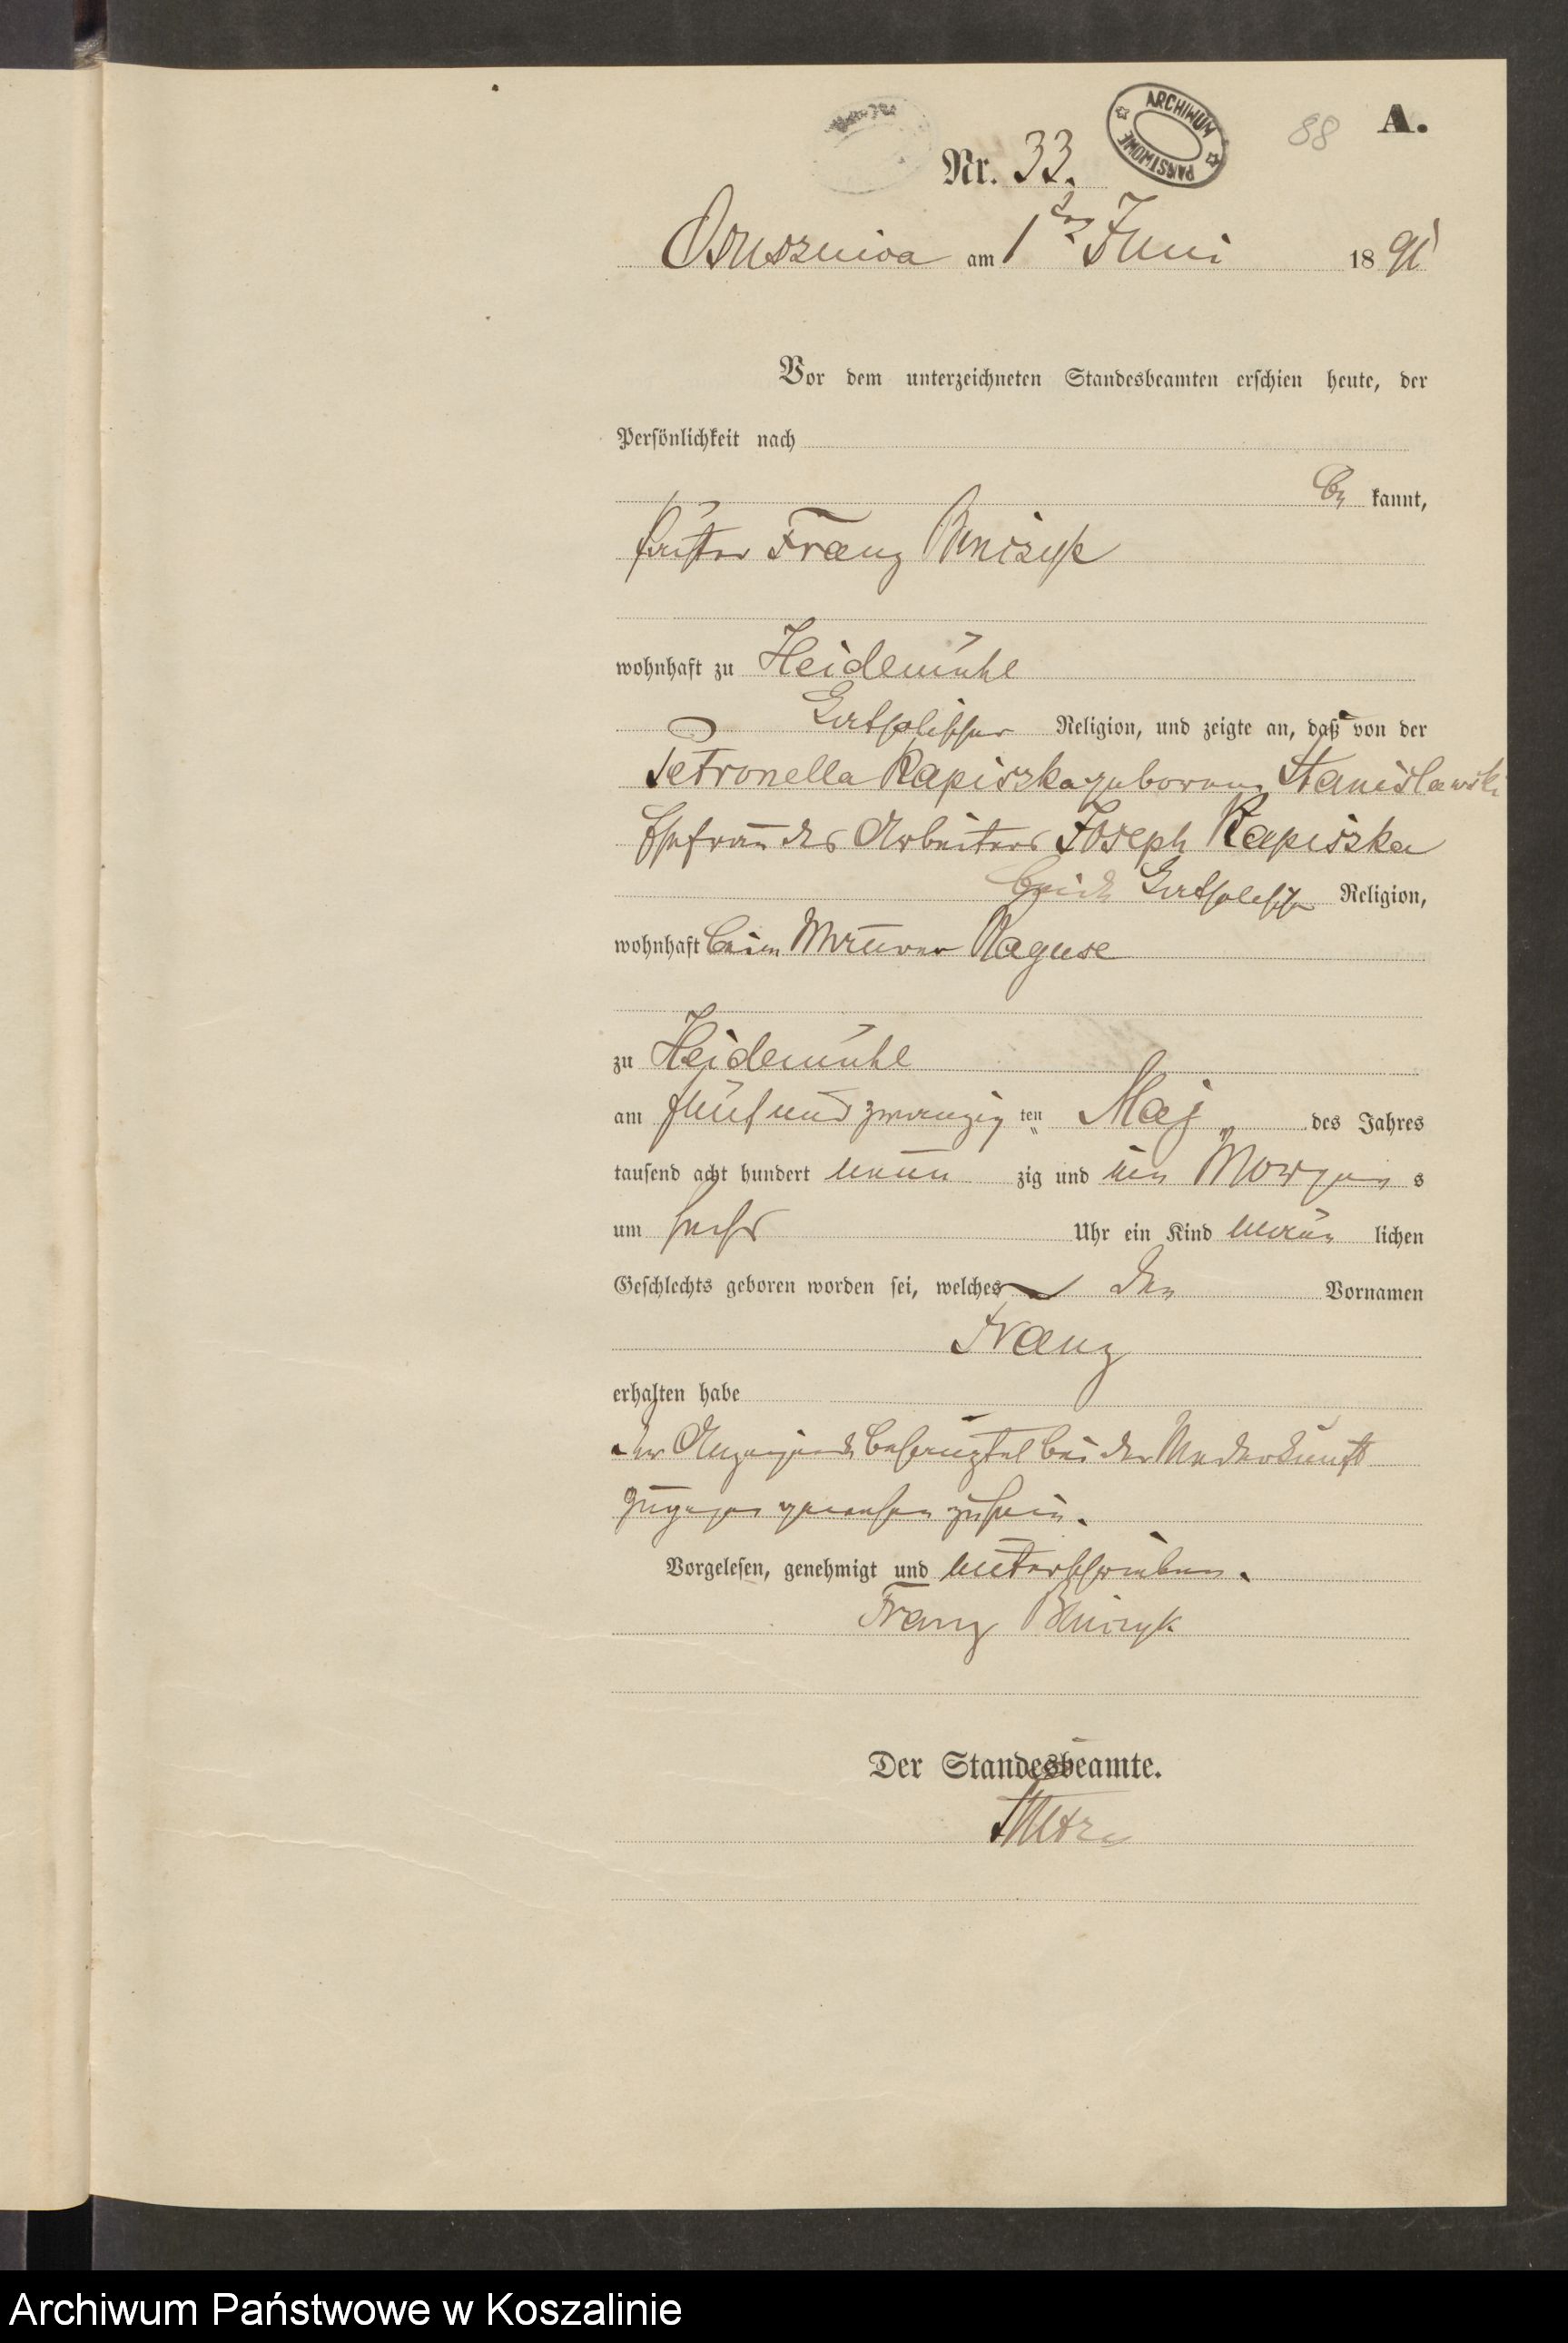 ARCHIWUM PAŃSTWOWE
88
A.
Nr. 33.
Osuszniza am 1ten Juni 1891
Vor dem unterzeichneten Standesbeamten erschien heute, der
Persönlichkeit nach
be kannt,
Franz
wohnhaft zu Heidemühl
katholischer Religion, und zeigte an, daß von der
Petronella Rapiszka geborene Stanislawski
Ehefrau des Arbeiters Joseph Rapiszka
beide katholischer Religion,
wohnhaft beim Maurer Raguse
zu Heidemühl
am fünf und zwanzig ten Mai des Jahres
tausend acht hundert neun zig und ein Morgen s
um sechs Uhr ein Kind männ lichen
Geschlechts geboren worden sei, welches den Vornamen
Franz
erhalten habe
der Anzeigende bescheinigte bei der Niederkunft
zugegen gewesen zu sein.
Vorgelesen, genehmigt und unterschrieben.
Franz
Der Standesbeamte.
Archiwum Państwowe w Koszalinie